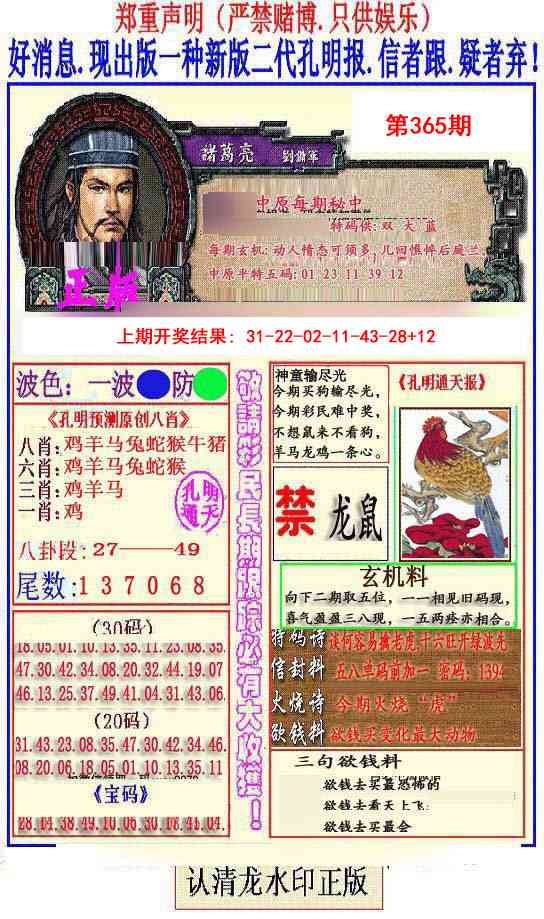 郑重声明（严禁赌博.只供娱乐）
好消息.现出版一种新版二代孔明报.信者跟.疑者弃!
第365期
諸葛亮
中原每期秘中
特码供:双 大 蓝
每期玄机:动人情态可须多,几回憔悴后庭兰
中原平特五码:01 23 11 39 12
正版
上期开奖结果: 31-22-02-11-43-28+12
波色: 一波 防
《孔明预测原创八肖》
八肖:鸡羊马兔蛇猴牛猪
六肖:鸡羊马兔蛇猴
三肖:鸡羊马
一肖:鸡
孔明
通天
八卦段:27——49
尾数:137068
(30码)
18.05.01.10.13.35.11.23.08.35.
47.30.42.34.08.20.32.44.19.07
46.13.25.37.49.41.04.31.43.06.
(20码)
31.43.23.08.35.47.30.42.34.46.
08.20.06.18.05.01.10.13.35.11
《宝码》
敬請彩民長期跟踪必有大收獲!
神童输尽光
今期买狗输尽光,
今期彩民难中奖,
不想鼠来不看狗,
羊马龙鸡一条心。
《孔明通天报》
禁 龙鼠
玄机料
向下二期取五位，一一相见旧码现，
喜气盈盈三八现，一五两疼亦相合。
特码诗 谈何容易擒老虎,十六旺开绿波先
信封料 五八单码前加一 密码: 1394
火烧诗 今期火烧“虎”
欲钱料 欲钱买变化最大动物
三句欲钱料
欲钱去买最恐怖的
欲钱去看天上飞:
欲钱去买最会
认清龙水印正版